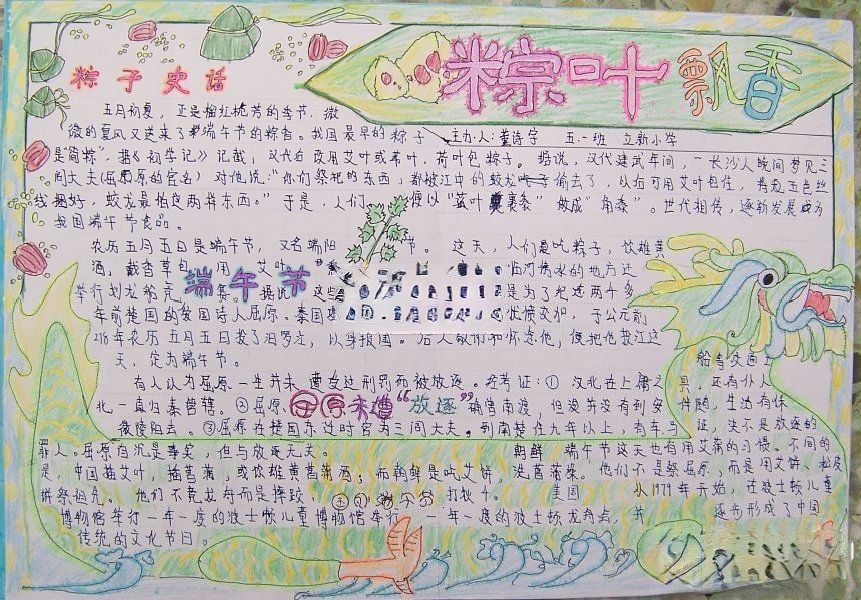 粽叶飘香
粽子史话
主办人:董诗字 五.一班 立新小学
五月初夏,正是榴红桃芳的季节,微
微的夏风又送来了端午节的粽香。我国最早的粽子
是"筒粽",据《初学记》记载:汉代后改用艾叶或苇叶、荷叶包粽子。据说,汉代建武年间,一长沙人晚间梦见三
闾大夫(屈原的官名)对他说:"你们祭祀的东西,都被江中的蛟龙偷去了,以后可用艾叶包住,将五色丝
线捆好,蛟龙最怕这两样东西。"于是,人们便以"菰叶裹黍"做成"角黍"。世代相传,逐渐发展成为
我国端午节食品。
农历五月五日是端午节,又名端阳节。这天,人们是吃粽子,饮雄黄
酒,戴香草包,用艾叶 临江傍水的地方还
端午节
举行划龙船竞赛。据说,这些 是为了纪念两千多
年前楚国的爱国诗人屈原。 于公元前
278年农历五月五日投了汨罗江,以身报国。后人敬仰和怀念他,便把他投江这
天,定为端午节。
有人认为屈原一生并未 遭过刑罚而被放逐。经考证:①汉北在上庸之
北一直归秦管辖。②屈原 确曾南渡,但没并没有到安
屈原未遭"放逐"
徽陵阳去。③屈原在楚国东迁时官为三闾大夫。到南楚住九年以上,有车马
船等交通工
具,还有仆人
伴随,生活有保
证,决不是放逐的
罪人。屈原自沉是事实,但与放逐无关。
朝鲜 端午节这天也有用艾蒲的习惯。不同的
是,中国插艾叶,插菖蒲,或饮雄黄菖蒲酒;而朝鲜是吃艾饼,洗菖蒲澡。他们不是祭屈原,而是用艾饼、松皮
饼祭祖先。他们不竞龙舟而是摔跤、打秋千。 美国 从1979年开始,在波士顿儿童
博物馆举行一年一度的波士顿儿童博物馆举行一年一度的波士顿龙舟会,并 逐步形成了中国
传统的文化节日。